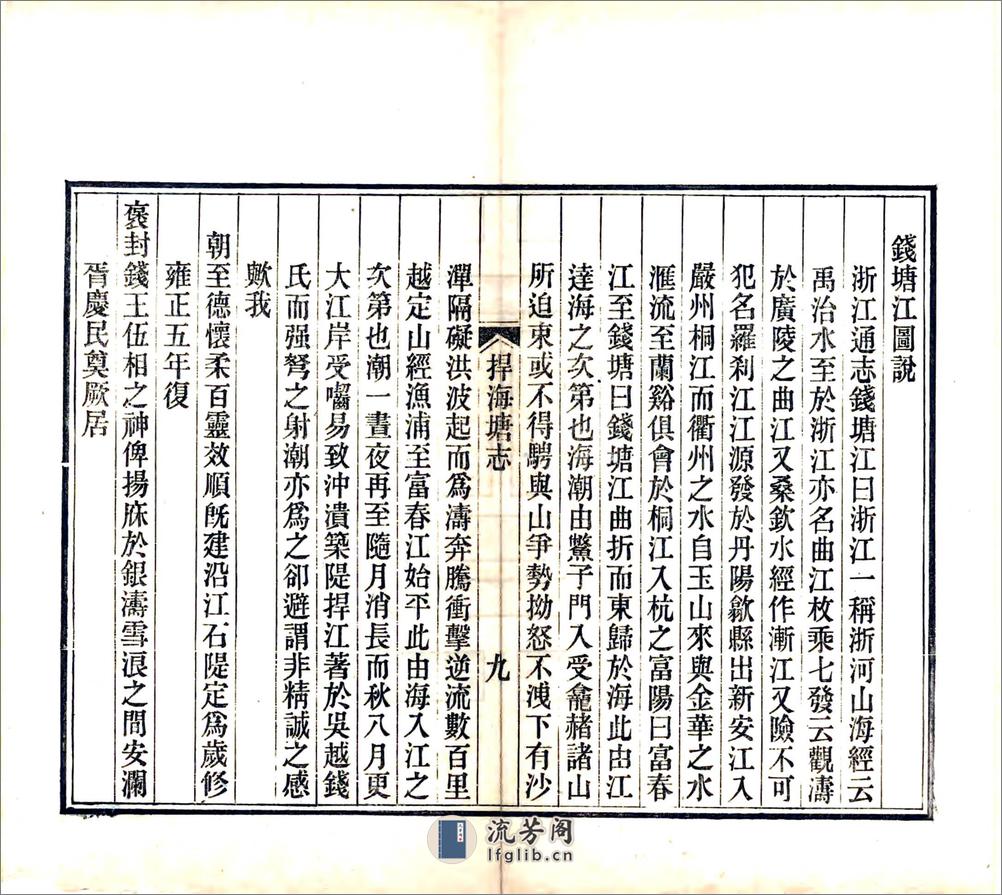 錢塘江圖說
浙江通志錢塘江曰浙江一稱浙河山海經云
禹治水至於浙江亦名曲江枚乘七發云觀濤
於廣陵之曲江又桑欽水經作漸江又險不可
犯名羅刹江江源發於丹陽歙縣出新安江入
嚴州桐江而衢州之水自玉山來與金華之水
滙流至蘭谿俱會於桐江入杭之富陽曰富春
江至錢塘曰錢塘江曲折而東歸於海此由江
達海之次第也海潮由鱉子門入受龕赭諸山
所迫束或不得騁與山爭勢拗怒不洩下有沙
捍海塘志
九
潬隔礙洪波起而爲濤奔騰衝擊逆流數百里
越定山經漁浦至富春江始平此由海入江之
次第也潮一晝夜再至隨月消長而秋八月更
大江岸受囓易致沖潰築隄捍江著於吳越錢
氏而强弩之射潮亦爲之卻避謂非精誠之感
歟我
朝至德懷柔百靈效順旣建沿江石隄定爲歲修
雍正五年復
褒封錢王伍相之神俾揚庥於銀濤雪浪之間安瀾
胥慶民奠厥居
流芳阁
lfglib.cn